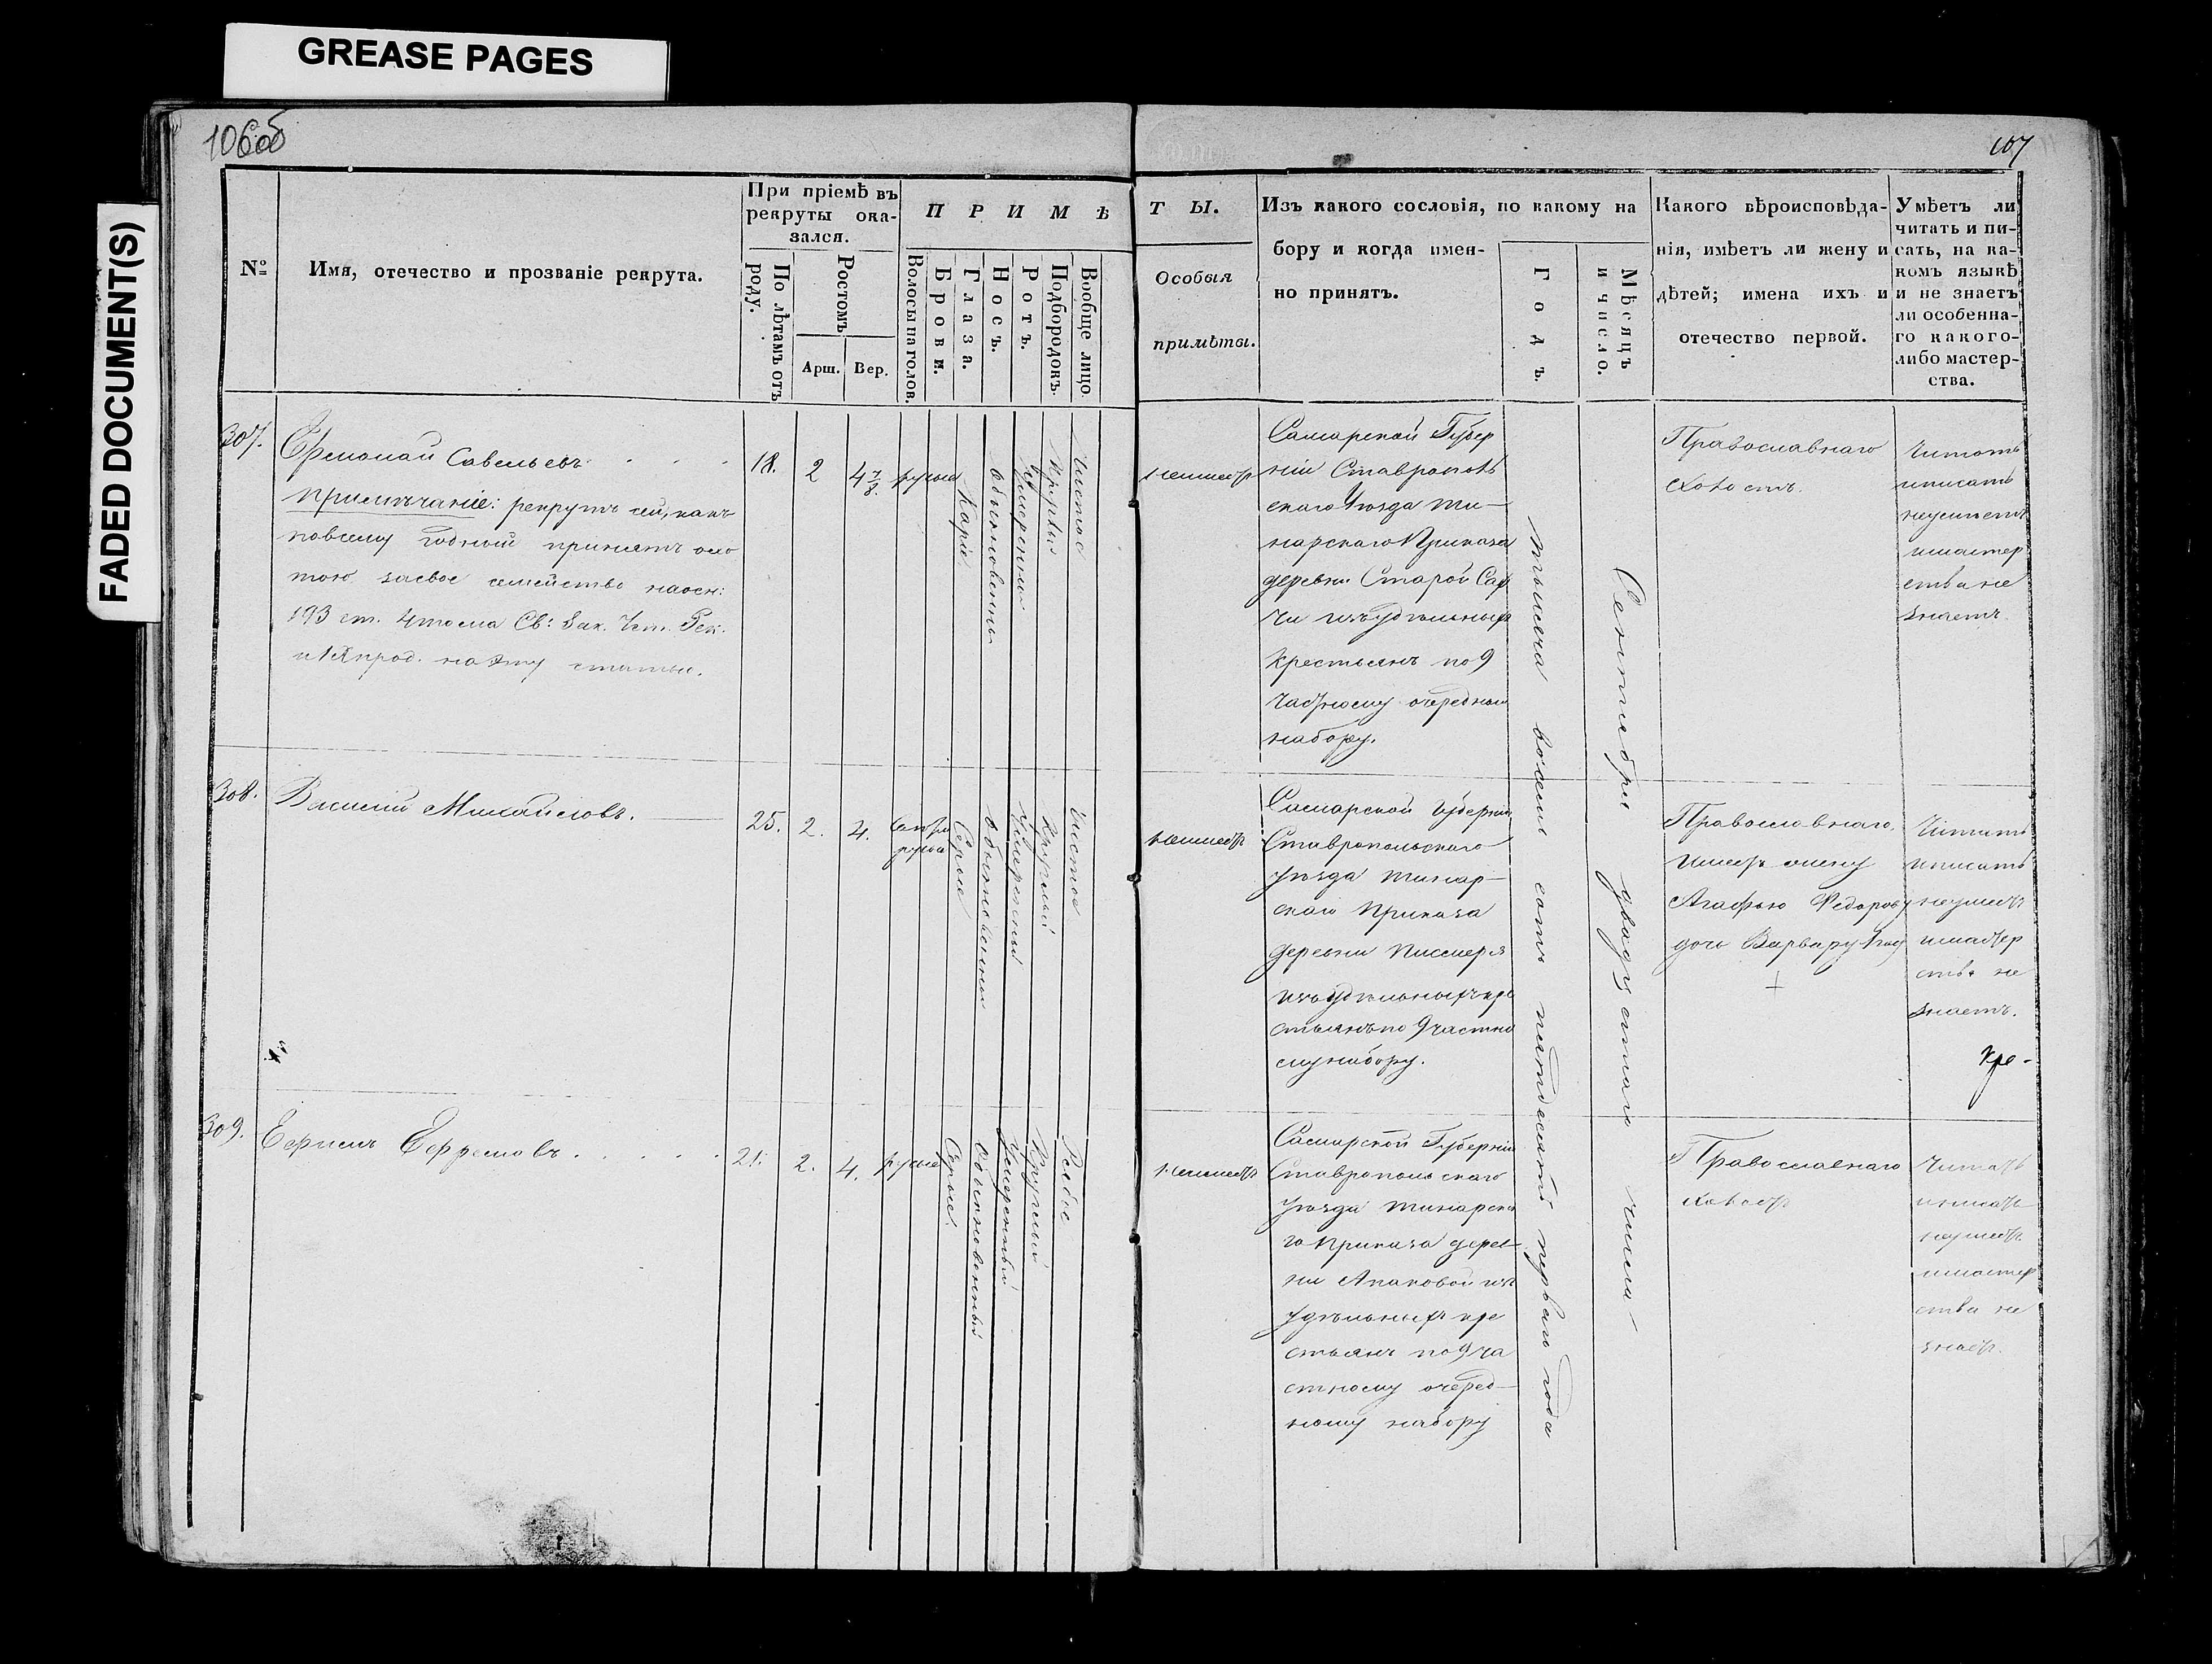 GREASE PAGES
FADED DOCUMENT(S)
106об
107
№
Имя, отечество и прозваніе рекрута.
При пріемѣ въ
рекруты ока-
зался.
По лѣтамъ отъ
роду.
Ростомъ
Арш.
Вер.
П Р И М Ѣ
Волосы на голов.
Брови.
Глаза.
Носъ.
Ротъ.
Подбородокъ.
Вообще лицо
Т Ы.
Особыя
примѣты.
Изъ какого сословія, по какому на
бору и когда имен-
но принятъ.
Годъ.
Мѣсяцъ
и число.
Какого вѣроисповѣда-
нія, имѣетъ ли жену и
дѣтей; имена ихъ и
отечество первой.
Умѣетъ ли
читать и пи-
сать, на ка-
комъ языкѣ
и не знаетъ
ли особенна-
го какого-
либо мастер-
ства.
307.
Савельевъ
Примѣчаніе: рекрутъ сей, какъ
повсему годный принятъ охо
тою засвое семейство наосн:
193 ст. 4тома Св: Зак. Уст. Рек.
статьи.
18.
2
4 7/8.
русые
Каріе
Обыкновенный
Умеренный
Круглый
Чистое
неимеетъ
Самарской Губер
ніи Ставрополь
скаго Уезда Ти-
нарскаго Приказа
деревни Старой
изъ удѣльныхъ
Крестьянъ по 9
частному очередному
набору.
тысяча восемь сотъ пятьдесятъ перваго года
Сентября двадцатаго числа -
Православнаго
Холостъ.
Читать
иписать
неумеетъ
имастер
ства не
знаетъ.
308.
Василій Михайловъ.
25.
2.
4.
русые
Серые
Обыкновенный
Умеренный
Круглый
Чистое
неимеетъ
Самарской Губерніи
Ставропольскаго
Уезда Тинар-
скаго Приказа
деревни
изъ удѣльныхъ кре
стьянъ по 9 частно
му набору.
Православнаго,
Имеетъ жену
Агафью Федорову
дочь Варвару
Читать
иписать
неумеетъ
имастер
ства не
знаетъ.
Кре-
309.
Ефимъ Ефремовъ
21.
2.
4.
русые
Серые.
Обыкновенный
Умеренный
Круглый
Рябое
неимеетъ
Самарской Губерніи
Ставропольскаго
Уезда Тинарска
го Приказа дерев-
ни Апаковой изъ
Удѣльныхъ кре
стьянъ по 9 ча
стному очеред-
ному набору
Православнаго
холостъ
Читать
иписать
неумеетъ
имастер
ства не
знаетъ.